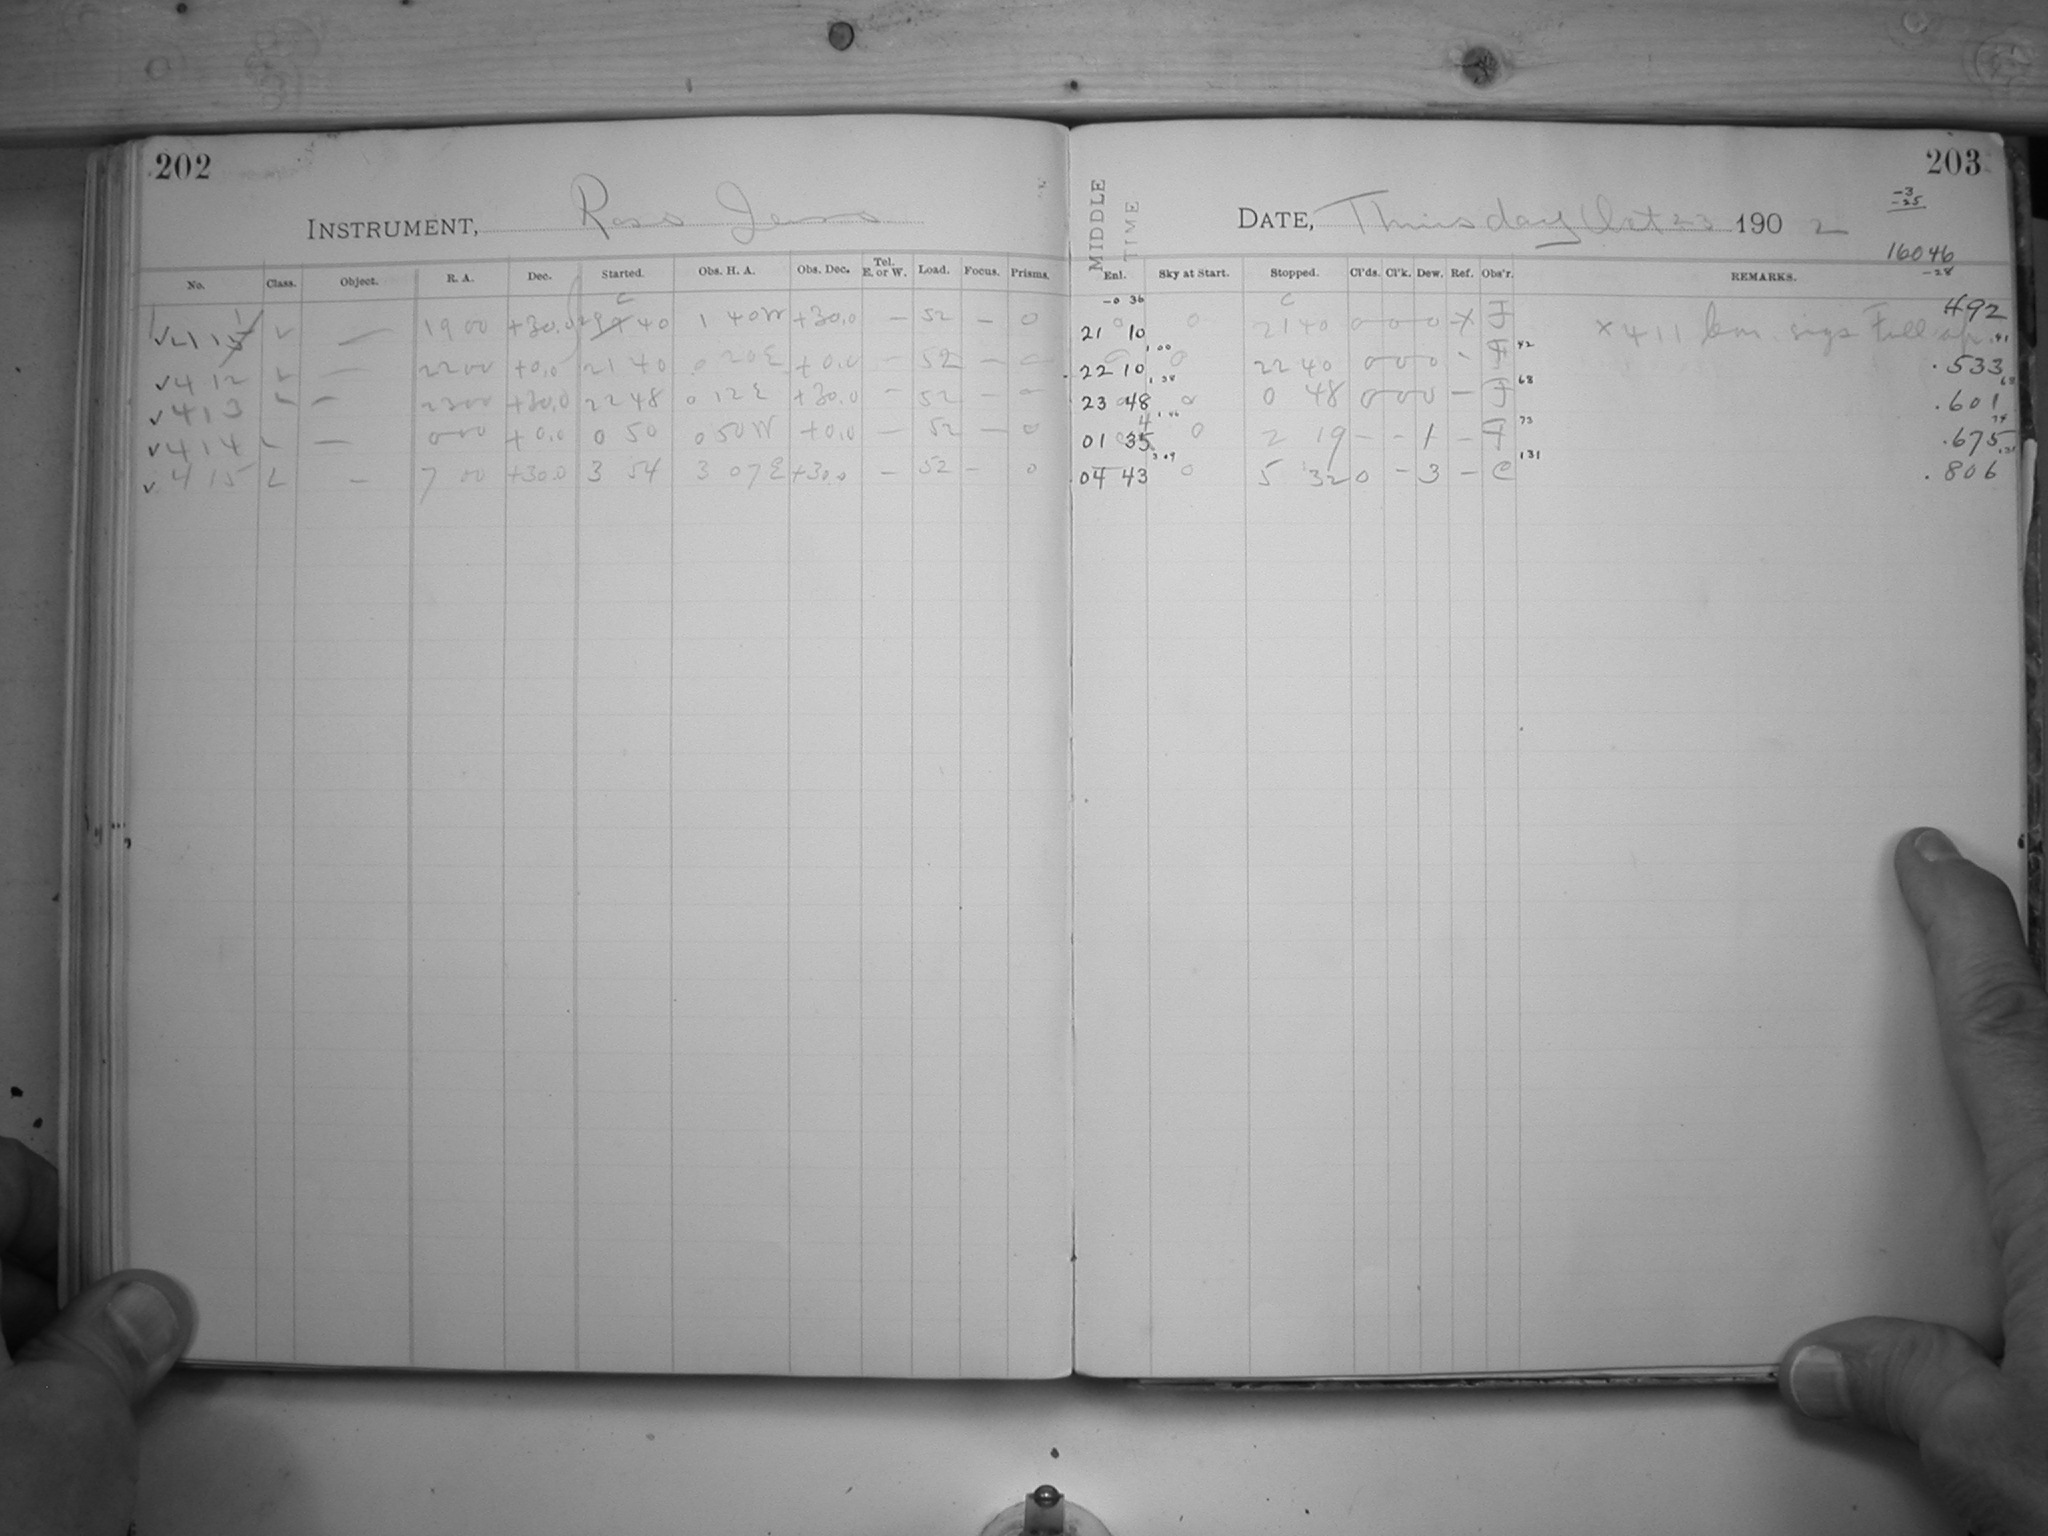 202
INSTRUMENT, Ross Lens
No. Class. Object. R. A. Dec. Started. Obs. H. A. Obs. Dec. Tel. E. or W. Load. Focus. Prisms.
19 00 +30.0 40 1 40W +30.0 – 52 – 0
√ 412 L — 22 00 +0.0 21 40 0 20E +0.0 – 52 – 0
√ 413 L — 23 00 +30.0 22 48 0 12E +30.0 – 52 – 0
√ 414 L — 0 00 +0.0 0 50 0 50W +0.0 – 52 – 0
√ 415 L — 7 00 +30.0 3 54 3 07E +30.0 – 52 – 0
203
MIDDLE TIME
DATE, Thursday Oct 23 1902
-3
-25
16046
-28
Enl. Sky at Start. Stopped. Cl'ds. Cl'k. Dew. Ref. Obs'r. REMARKS.
-0 36 C
21 10 0 21 40 0 0 0 X F × 411 Full 492
1 00 42 41
22 10 0 22 40 0 0 0 - F .533
1 38 68 68
23 48 0 0 48 0 0 0 – F .601
73 74
01 35 0 2 19 – – 1 – F .675
3 09 131 131
04 43 0 5 32 0 – 3 – C .806